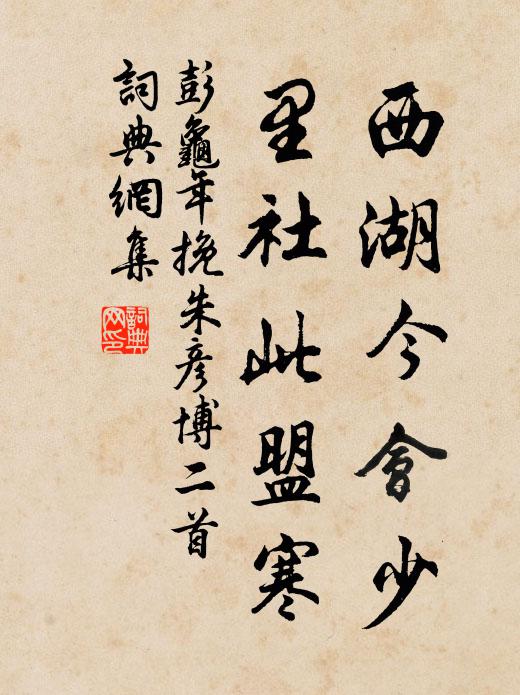 西湖今會少
里社此盟寒
彭龜年挽朱彦博二首
詞典網集
詞典网印